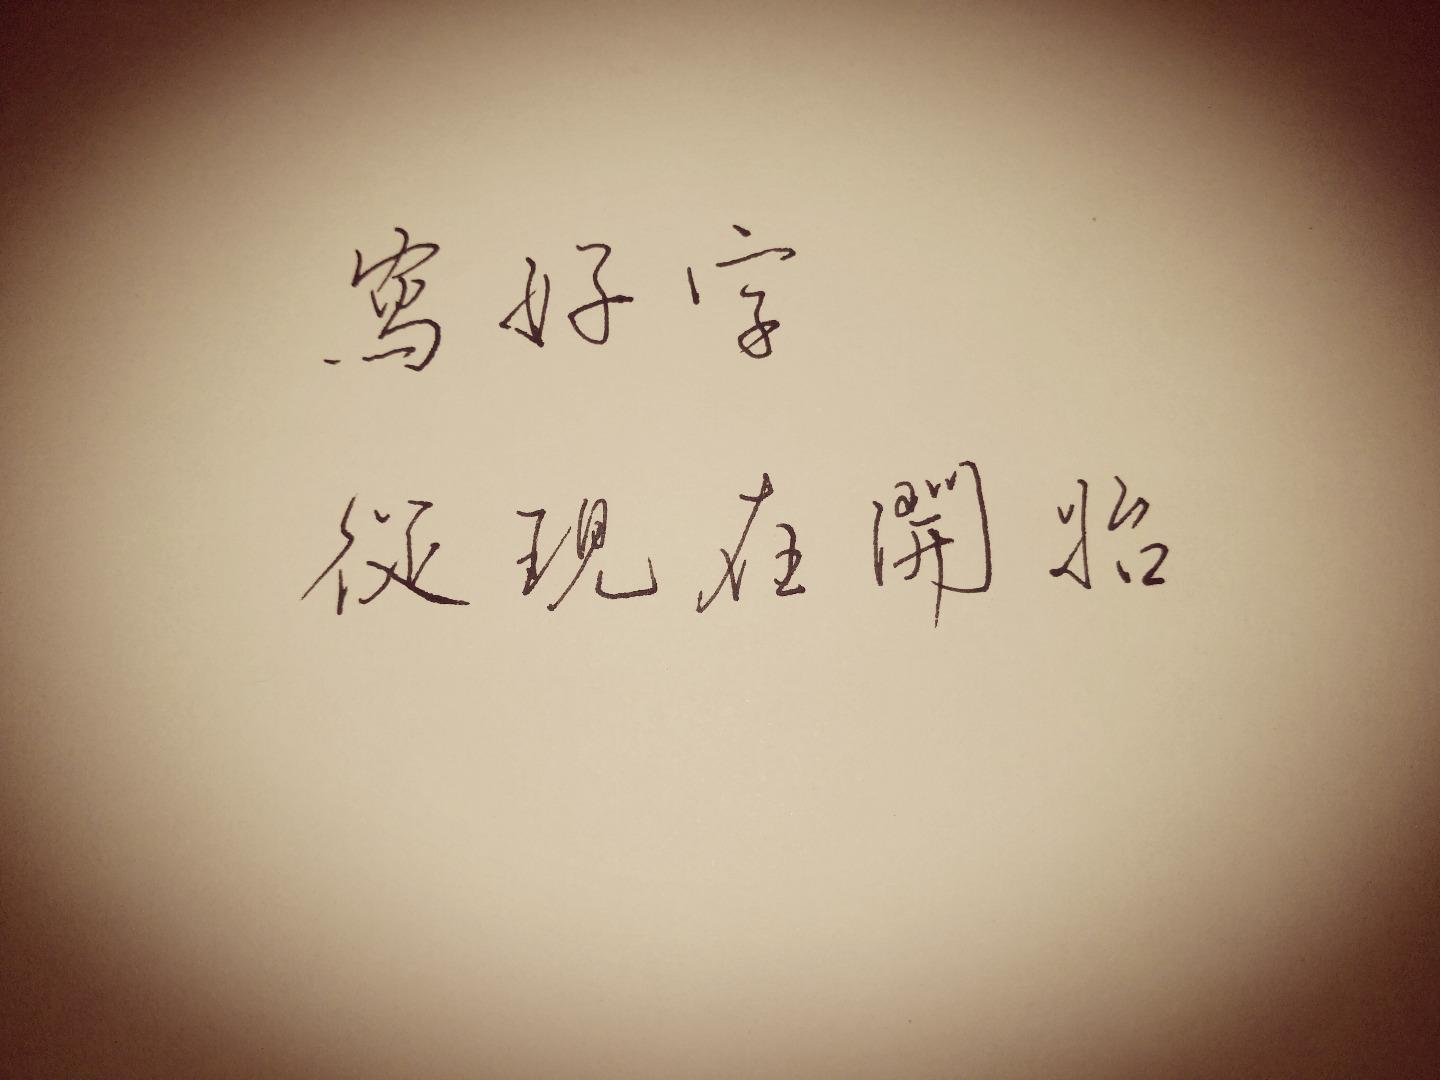 寫好字
從現在開始